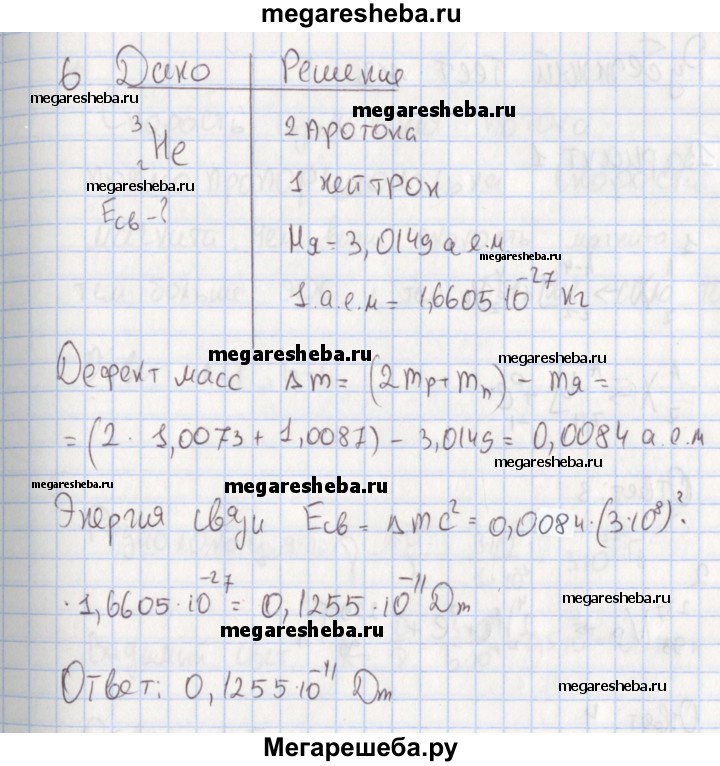 megaresheba.ru
6 Дано Решение
megaresheba.ru
megaresheba.ru
³₂He
2 протона
megaresheba.ru
1 нейтрон
Eсв - ?
Mя = 3,0149 а.е.м.
megaresheba.ru
1 а.е.м = 1,6605·10⁻²⁷ кг
megaresheba.ru
megaresheba.ru
Дефект масс Δm = (2mp + mn) - mя =
= (2 · 1,0073 + 1,0087) - 3,0149 = 0,0084 а.е.м
megaresheba.ru
megaresheba.ru
megaresheba.ru
Энергия связи Eсв = Δmc² = 0,0084·(3·10⁸)²·
· 1,6605·10⁻²⁷ = 0,1255·10⁻¹¹ Дж
megaresheba.ru
megaresheba.ru
Ответ: 0,1255·10⁻¹¹ Дж
megaresheba.ru
Мегарешеба.ру